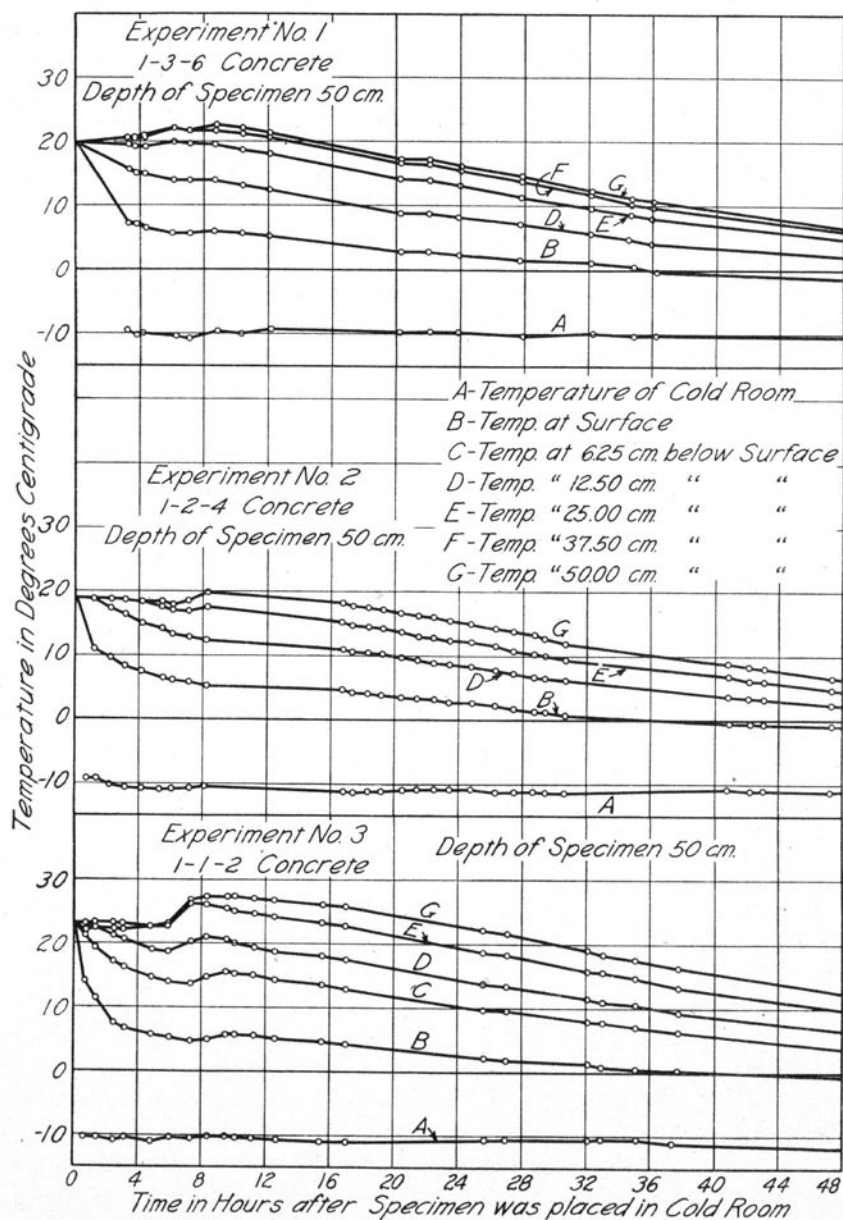 Experiment No. 1
1-3-6 Concrete
Depth of Specimen 50 cm.
30
20
10
0
-10
F
G
C
E
D
B
A
A-Temperature of Cold Room
B-Temp. at Surface
C-Temp. at 6.25 cm. below Surface
D-Temp. " 12.50 cm. " "
E-Temp. " 25.00 cm. " "
F-Temp. " 37.50 cm. " "
G-Temp. " 50.00 cm. " "
Temperature in Degrees Centigrade
Experiment No. 2
1-2-4 Concrete
Depth of Specimen 50 cm.
20
10
0
-10
G
E
D
B
A
Experiment No. 3
1-1-2 Concrete
Depth of Specimen 50 cm.
30
20
10
0
-10
G
E
D
C
B
A
0 4 8 12 16 20 24 28 32 36 40 44 48
Time in Hours after Specimen was placed in Cold Room